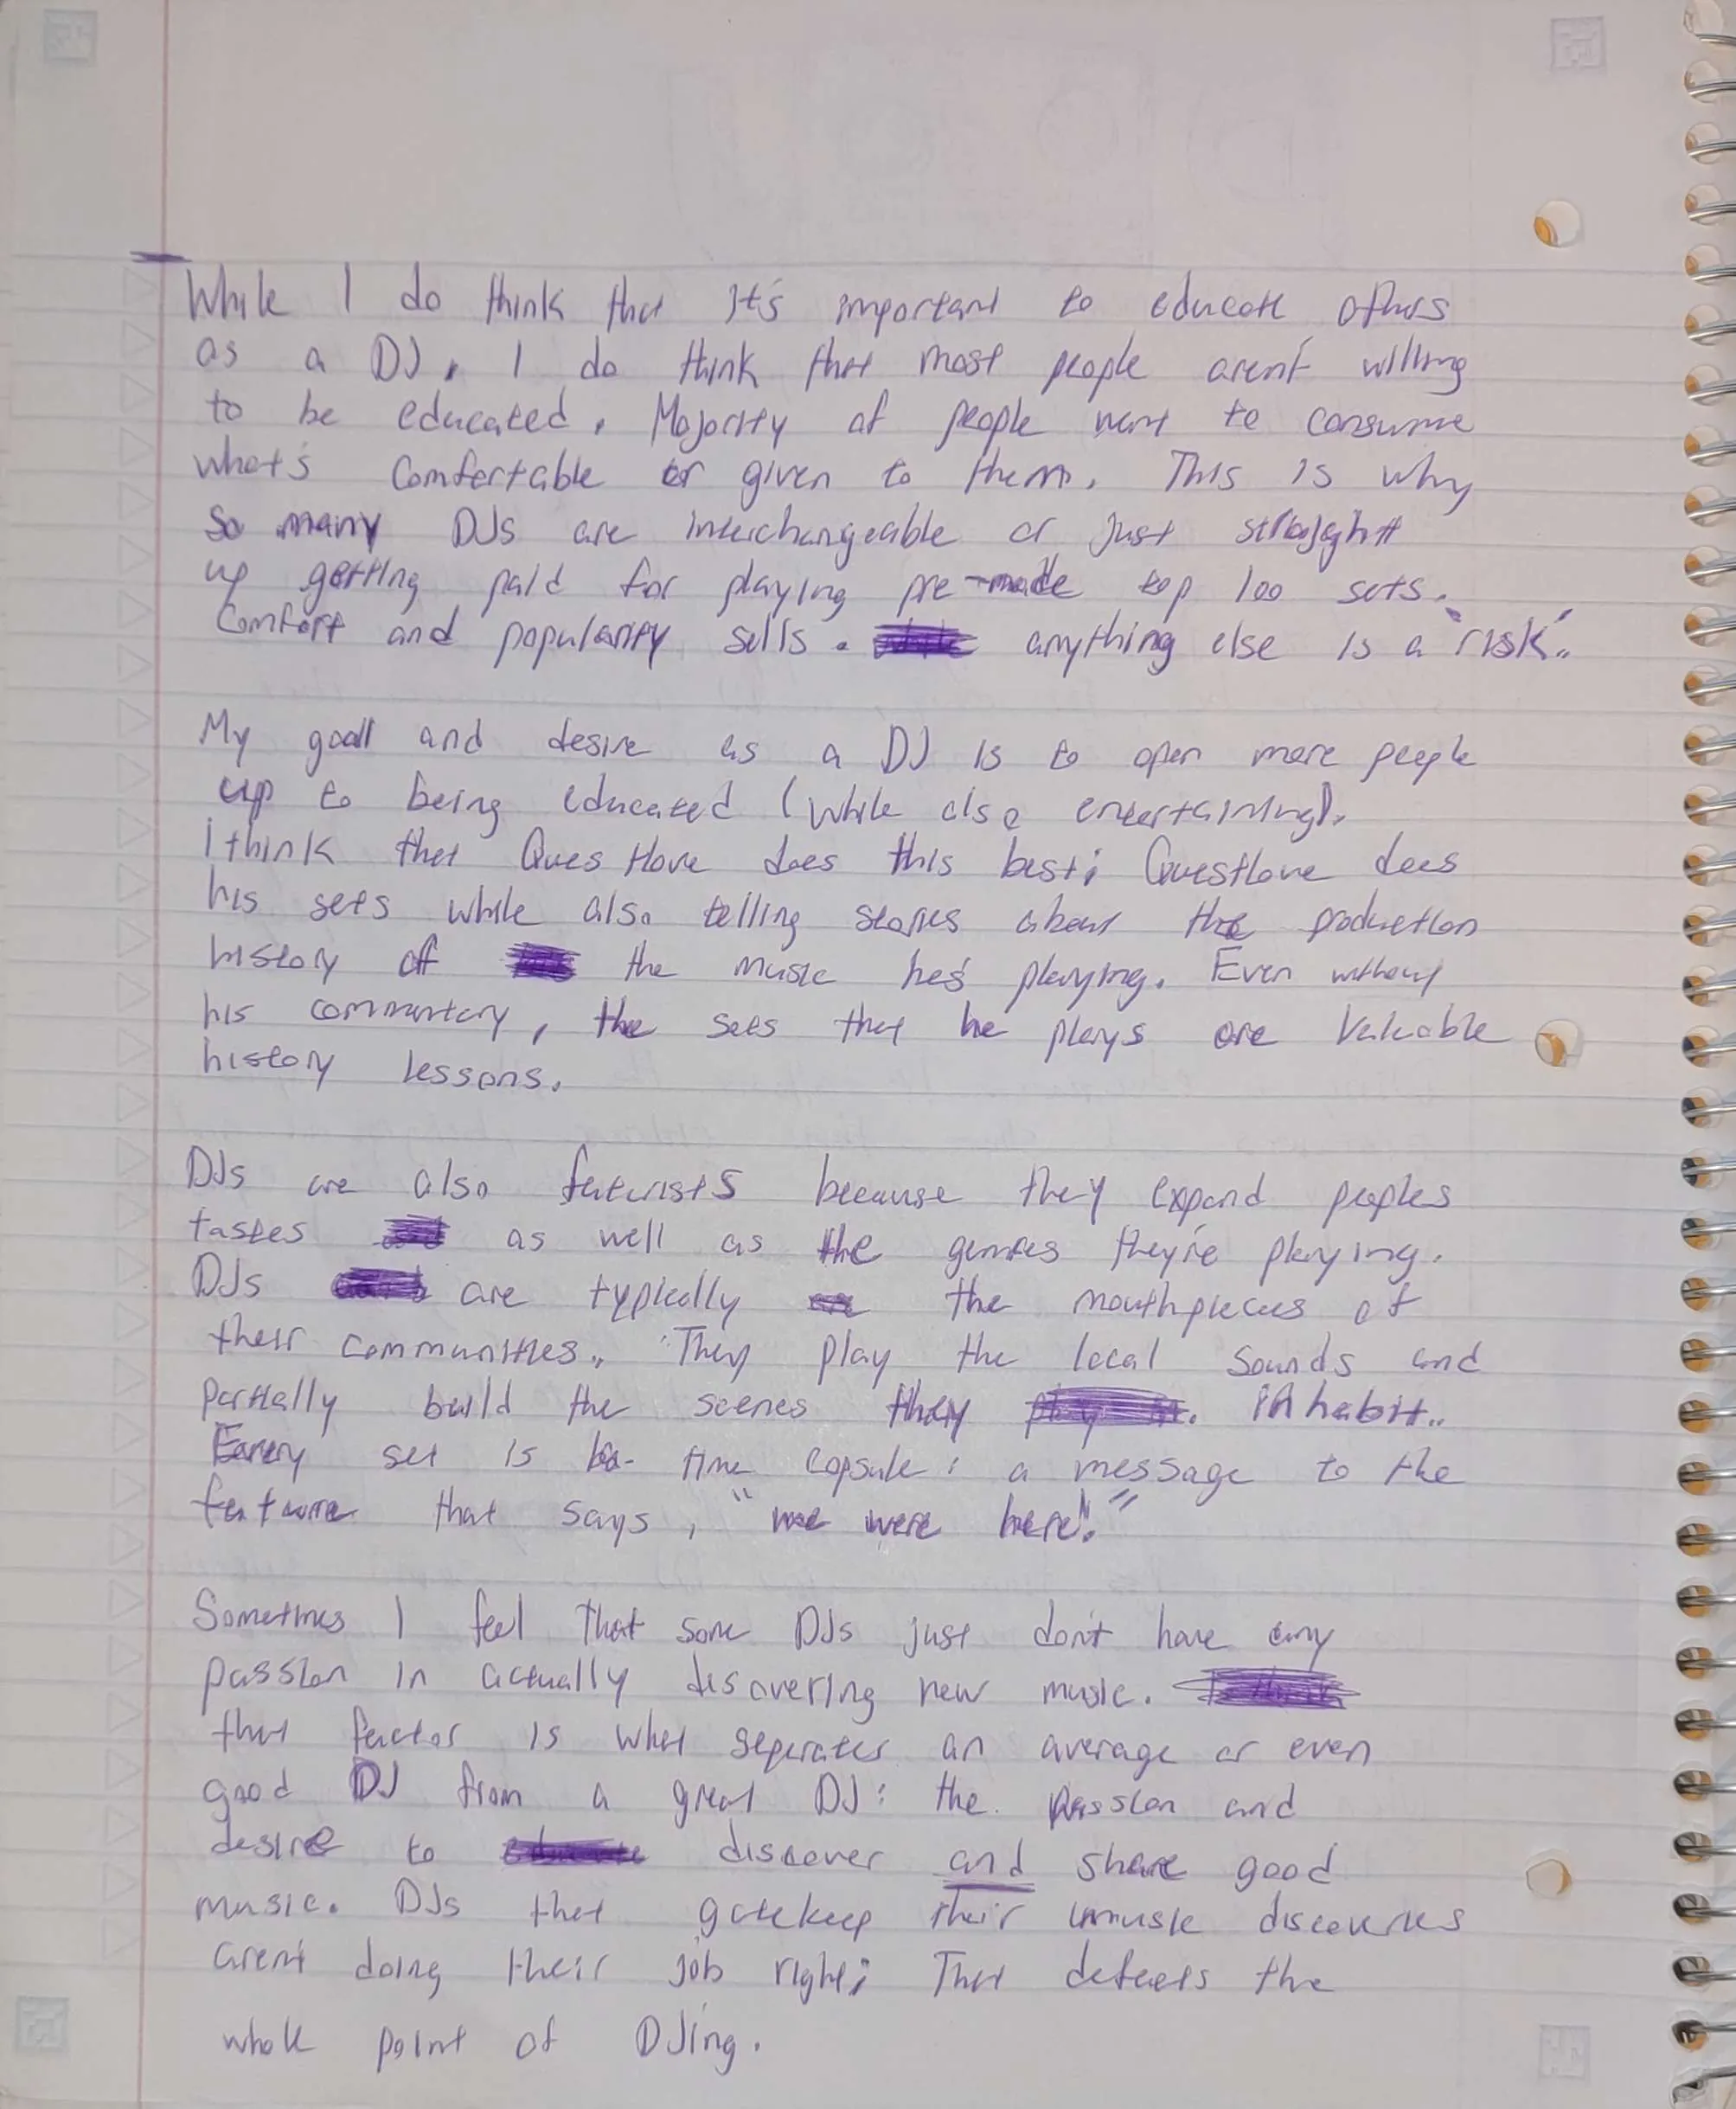 While I do think that it's important to educate others
as a DJ, I do think that most people aren't willing
to be educated. Majority of people want to consume
what's comfortable or given to them. This is why
so many DJs are interchangeable or just straight
up getting paid for playing pre-made top 100 sets.
Comfort and popularity sells. anything else is a "risk".
My goal and desire as a DJ is to open more people
up to being educated (while also entertaining).
I think that Questlove does this best; Questlove does
his sets while also telling stories about the production
history of the music he's playing. Even without
his commentary, the sets that he plays are valuable
history lessons.
DJs are also futurists because they expand peoples
tastes as well as the genres they're playing.
DJs are typically the mouthpieces of
their communities. They play the local sounds and
partially build the scenes they inhabit.
Every set is a time capsule: a message to the
future that says, "we were here!"
Sometimes I feel that some DJs just don't have any
passion in actually discovering new music.
that factor is what seperates an average or even
good DJ from a great DJ: the passion and
desire to discover and share good
music. DJs that gatekeep their music discoveries
aren't doing their job right; That defeats the
whole point of DJing.